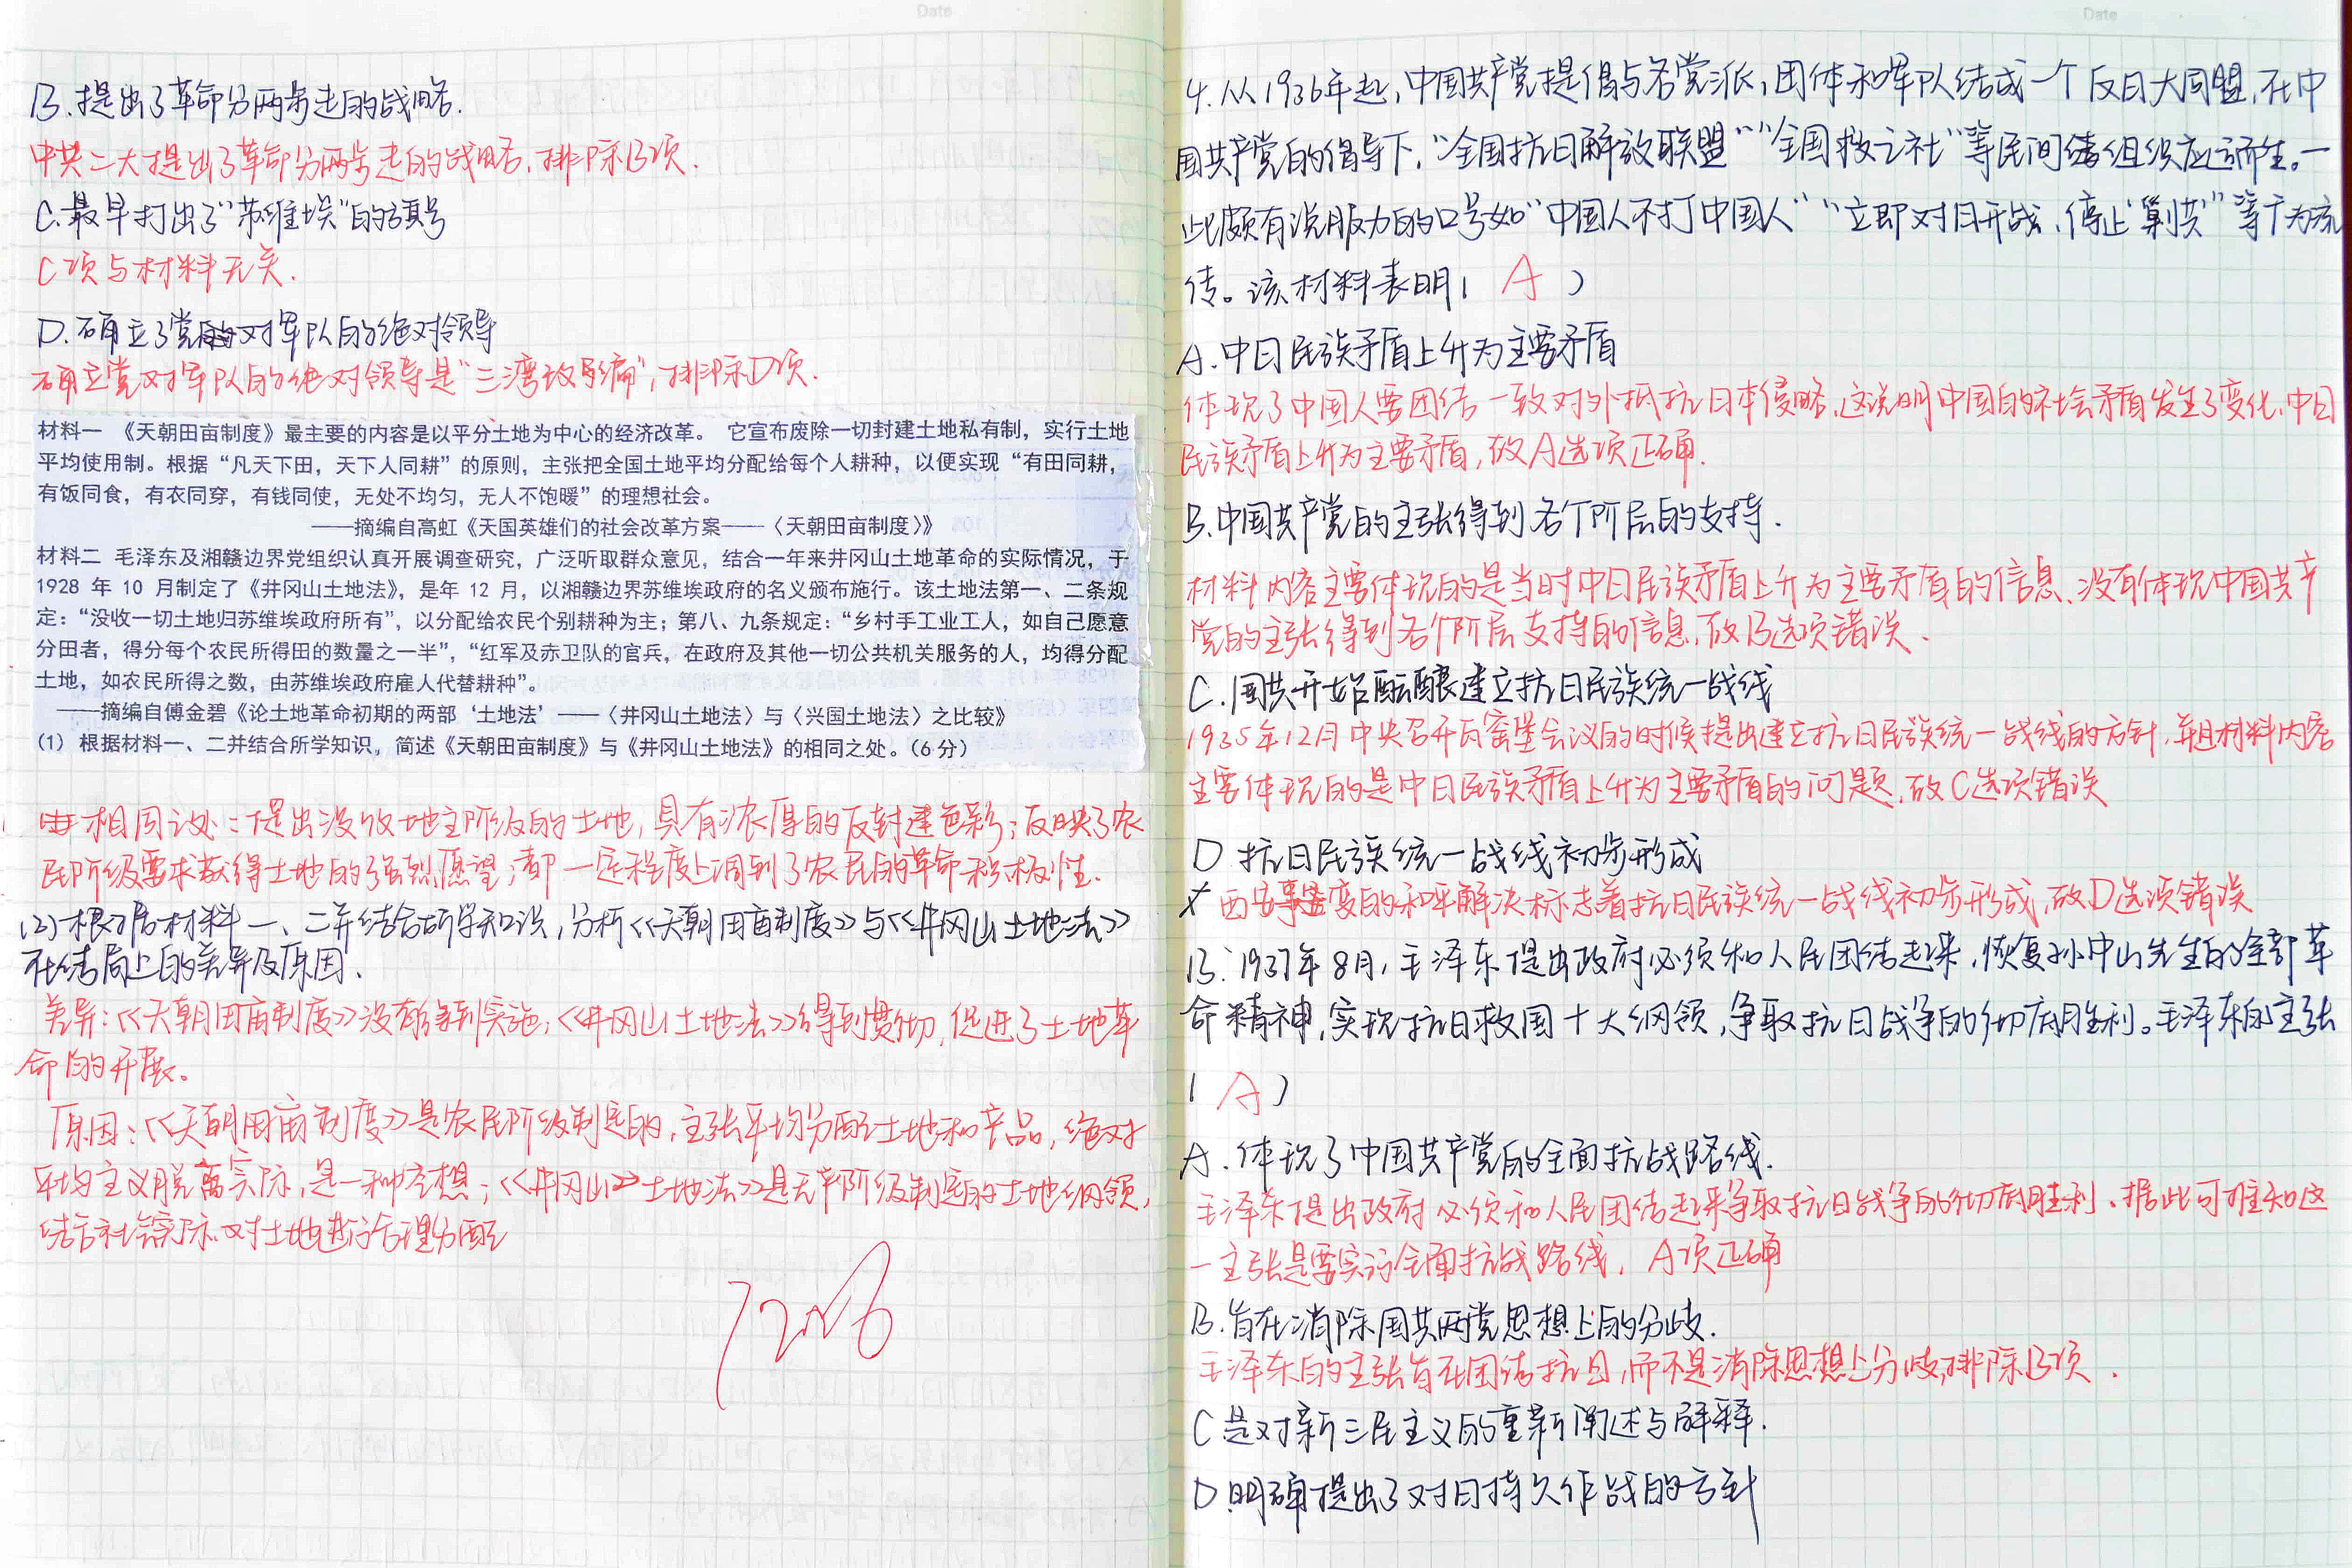 Date
B.提出了革命分两步走的战略.
中共二大提出了革命分两步走的战略,排除B项.
C.最早打出了"苏维埃"的旗号
C项与材料无关.
D.确立了党对军队的绝对领导
确立党对军队的绝对领导是"三湾改编",排除D项.
材料一 《天朝田亩制度》最主要的内容是以平分土地为中心的经济改革。 它宣布废除一切封建土地私有制，实行土地
平均使用制。根据“凡天下田，天下人同耕”的原则，主张把全国土地平均分配给每个人耕种，以便实现“有田同耕，
有饭同食，有衣同穿，有钱同使，无处不均匀，无人不饱暖”的理想社会。
——摘编自高虹《天国英雄们的社会改革方案——〈天朝田亩制度〉》
材料二 毛泽东及湘赣边界党组织认真开展调查研究，广泛听取群众意见，结合一年来井冈山土地革命的实际情况，于
1928 年 10 月制定了《井冈山土地法》，是年 12 月，以湘赣边界苏维埃政府的名义颁布施行。该土地法第一、二条规
定：“没收一切土地归苏维埃政府所有”，以分配给农民个别耕种为主；第八、九条规定：“乡村手工业工人，如自己愿意
分田者，得分每个农民所得田的数量之一半”，“红军及赤卫队的官兵，在政府及其他一切公共机关服务的人，均得分配
土地，如农民所得之数，由苏维埃政府雇人代替耕种”。
——摘编自傅金碧《论土地革命初期的两部‘土地法’——〈井冈山土地法〉与〈兴国土地法〉之比较》
(1) 根据材料一、二并结合所学知识，简述《天朝田亩制度》与《井冈山土地法》的相同之处。(6 分)
相同之处:提出没收地主阶级的土地,具有浓厚的反封建色彩;反映了农
民阶级要求获得土地的强烈愿望;都一定程度上调到了农民的革命积极性.
(2)根据材料一、二并结合所学知识,分析《天朝田亩制度》与《井冈山土地法》
在结局上的差异及原因.
差异:《天朝田亩制度》没有得到实施;《井冈山土地法》得到贯彻,促进了土地革
命的开展。
原因:《天朝田亩制度》是农民阶级制定的,主张平均分配土地和产品,绝对
平均主义脱离实际,是一种空想;《井冈山》土地法》是无产阶级制定的土地纲领,
结合社会实际.对土地进行合理分配
Date
4.从1936年起,中国共产党提倡与各党派,团体和军队结成一个反日大同盟,在中
国共产党的倡导下,"全国抗日解放联盟""全国救亡社"等民间组织应运而生。一
此颇有说服力的口号如"中国人不打中国人""立即对日开战,停止'剿共'"等广为流
传。该材料表明( A )
A.中日民族矛盾上升为主要矛盾
体现了中国人要团结一致对外抵抗日本侵略,这说明中国的社会矛盾发生了变化,中日
民族矛盾上升为主要矛盾,故A选项正确.
B.中国共产党的主张得到各个阶层的支持.
材料内容主要体现的是当时中日民族矛盾上升为主要矛盾的信息,没有体现中国共产
党的主张得到各个阶层支持的信息,故B选项错误.
C.国共开始酝酿建立抗日民族统一战线
1935年12月中央召开瓦窑堡会议的时候提出建立抗日民族统一战线的方针,并且材料内容
主要体现的是中日民族矛盾上升为主要矛盾的问题,故C选项错误
D 抗日民族统一战线初步形成
西安事变的和平解决标志着抗日民族统一战线初步形成,故D选项错误
13.1937年8月,毛泽东提出政府必须和人民团结起来,恢复孙中山先生的全部革
命精神,实现抗日救国十大纲领,争取抗日战争的彻底胜利。毛泽东的主张
( A )
A.体现了中国共产党的全面抗战路线.
毛泽东提出政府必须和人民团结起来争取抗日战争的彻底胜利.据此可推知这
一主张是要实行全面抗战路线, A项正确
B.旨在消除国共两党思想上的分歧.
毛泽东的主张旨在团结抗日,而不是消除思想上分歧,排除B项.
C 是对新三民主义的重新阐述与解释.
D.明确提出了对日持久作战的方针